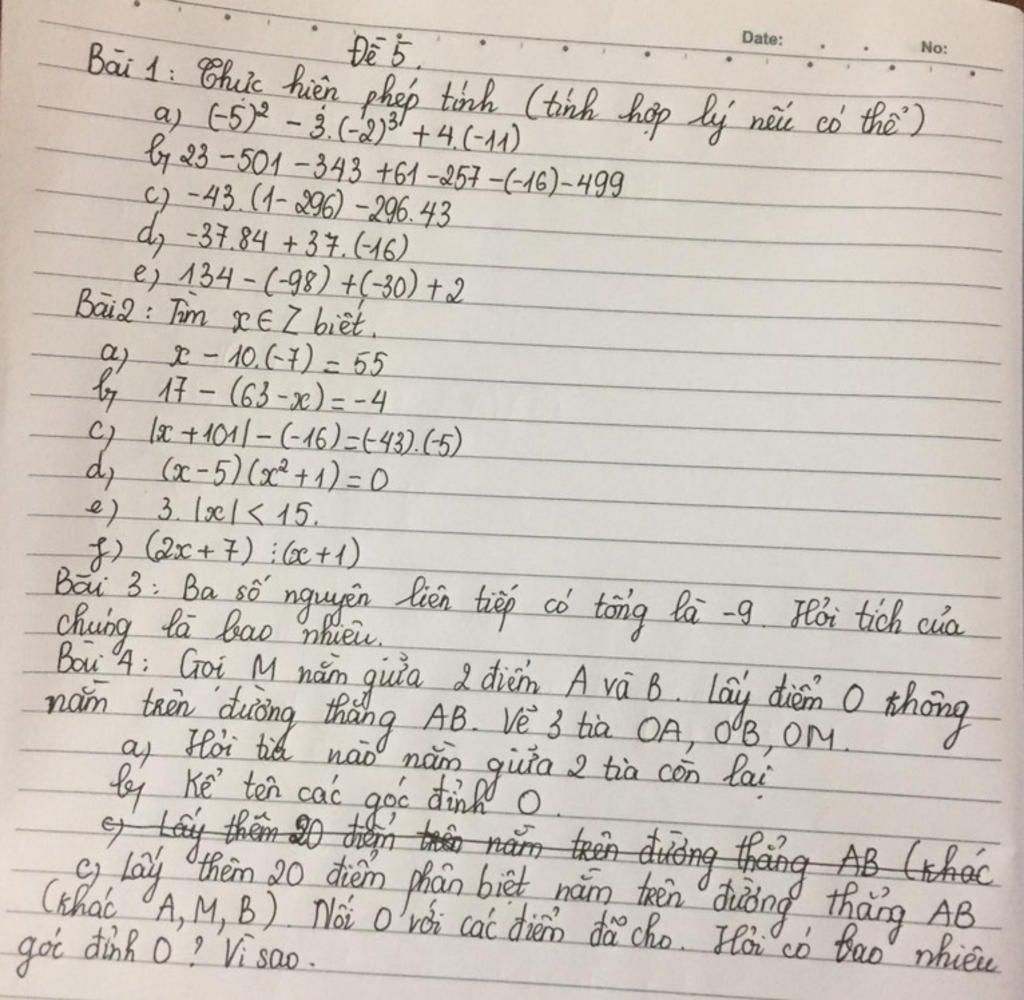 Date: No:
Đề 5.
Bài 1: Thực hiện phép tính (tính hợp lý nếu có thể)
a) (-5)² - 3.(-2)³ + 4.(-11)
b) 23 - 501 - 343 + 61 - 257 - (-16) - 499
c) -43.(1 - 296) - 296.43
d) -37.84 + 37.(-16)
e) 134 - (-98) + (-30) + 2
Bài 2: Tìm x ∈ Z biết.
a) x - 10.(-7) = 55
b) 17 - (63 - x) = -4
c) |x + 101| - (-16) = (-43).(-5)
d) (x - 5)(x² + 1) = 0
e) 3. |x| < 15.
f) (2x + 7) ⋮ (x + 1)
Bài 3: Ba số nguyên liên tiếp có tổng là -9. Hỏi tích của
chúng là bao nhiêu.
Bài 4: Gọi M nằm giữa 2 điểm A và B. Lấy điểm O không
nằm trên đường thẳng AB. Vẽ 3 tia OA, OB, OM.
a) Hỏi tia nào nằm giữa 2 tia còn lại
b) Kể tên các góc đỉnh O.
c) Lấy thêm 20 điểm trên nằm trên đường thẳng AB (khác
c) Lấy thêm 20 điểm phân biệt nằm trên đường thẳng AB
(khác A, M, B). Nối O với các điểm đã cho. Hỏi có bao nhiêu
góc đỉnh O? Vì sao.